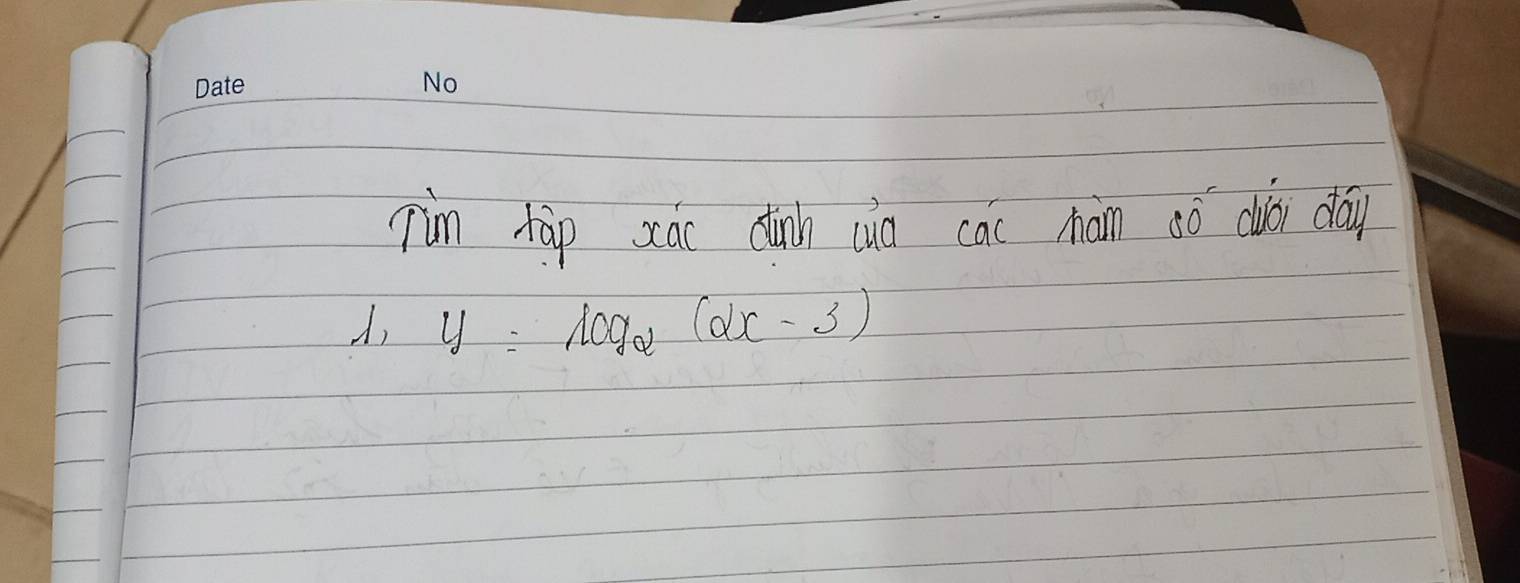 Date No
Tìm tập xác định của các hàm số dưới đây
1, y = log₂ (2x - 3)